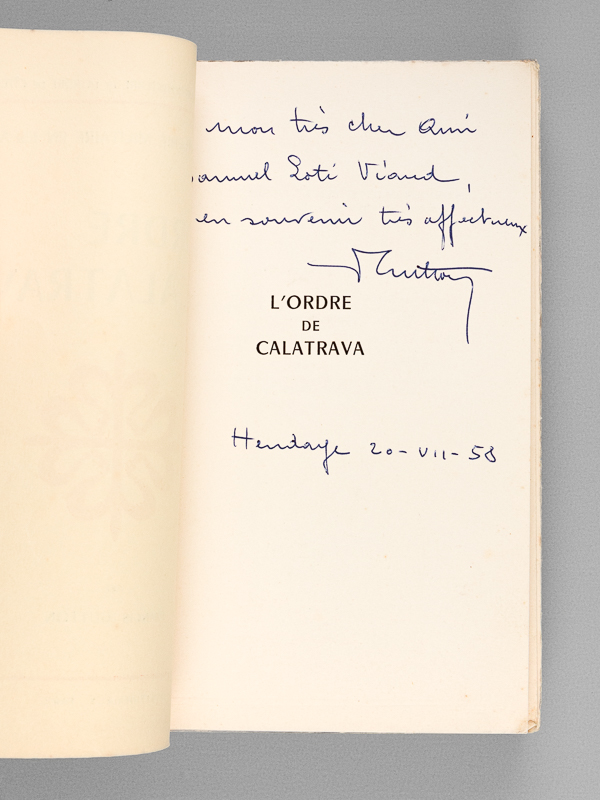 mon très cher Ami
Samuel Loti Viaud,
en souvenir très affectueux
L'ORDRE
DE
CALATRAVA
Hendaye 20-VII-58